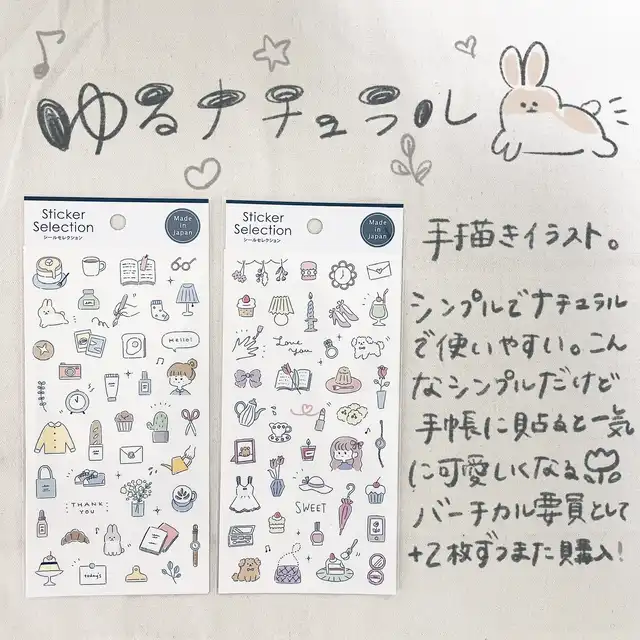 ゆるナチュラル
Sticker
Selection
シールセレクション
Made
in
Japan
Hello!
THANK
YOU
today's
Sticker
Selection
シールセレクション
Made
in
Japan
Love
you
SWEET
手描きイラスト。
シンプルでナチュラル
で使いやすい。こん
なシンプルだけど
手帳に貼ると一気
に可愛くなる
バーチカル要員として
+2枚ずつまた購入!